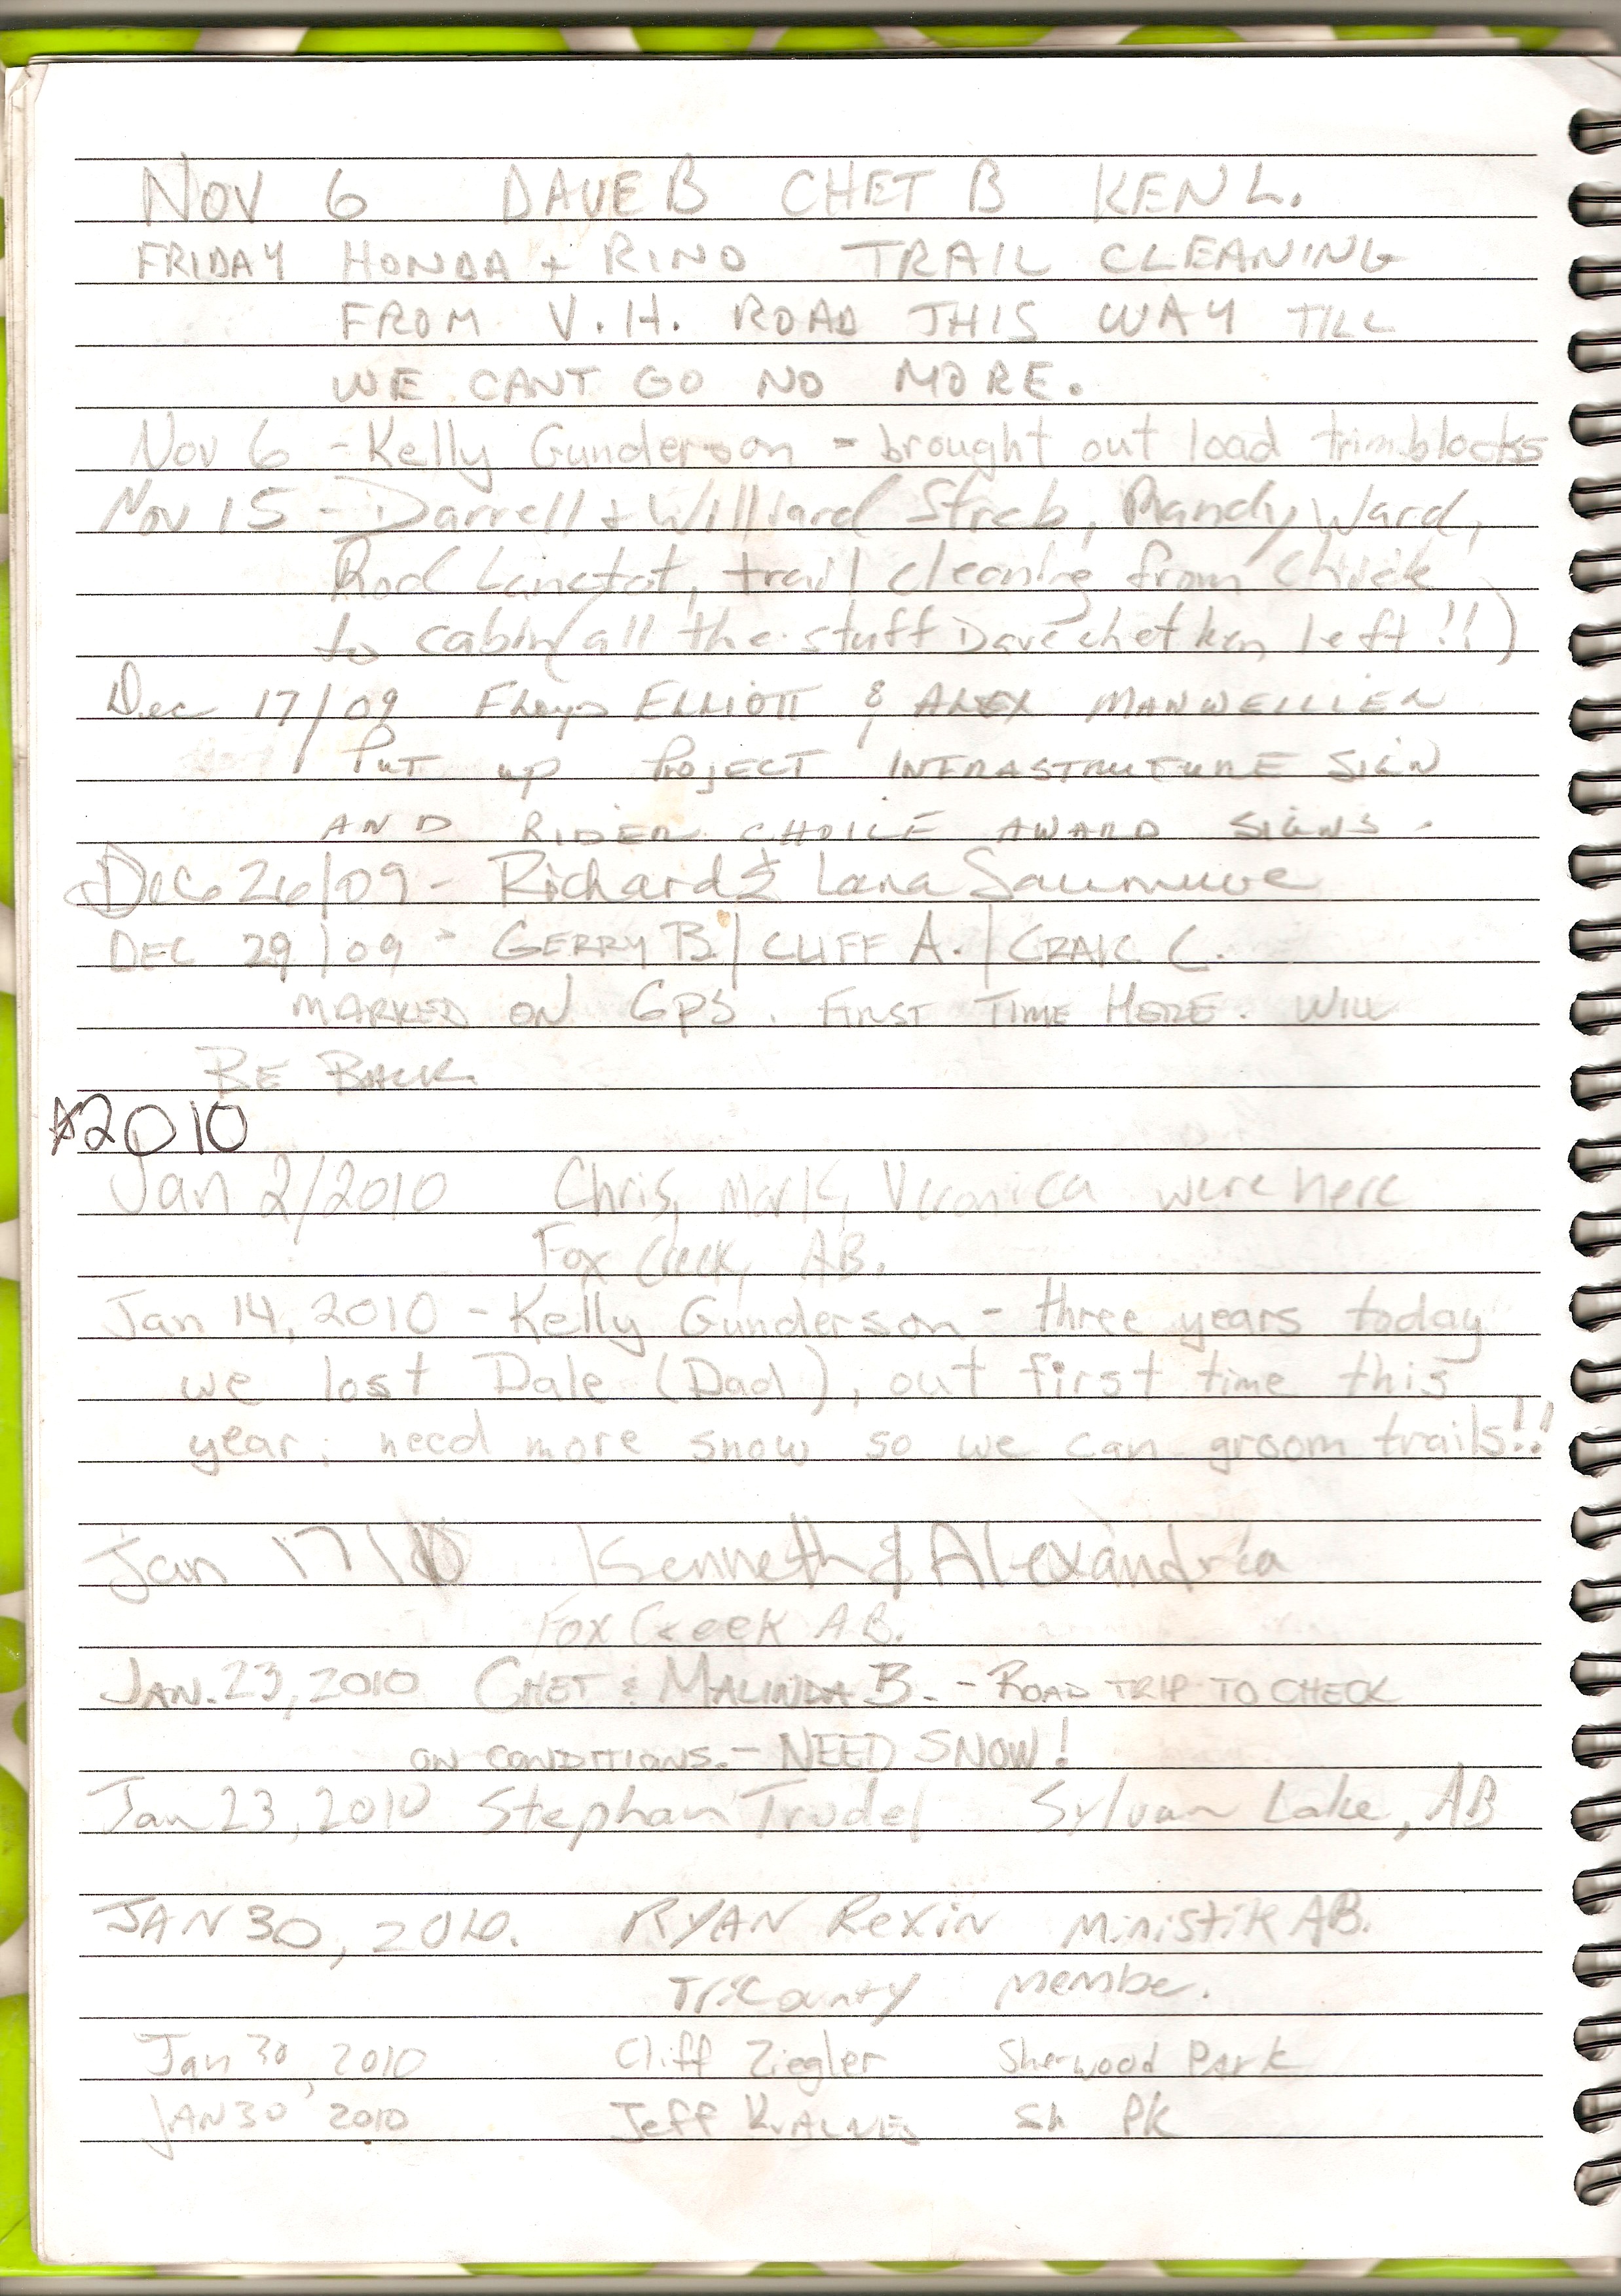 NOV 6 DAVE B CHET B KEN L.
FRIDAY HONDA + RINO TRAIL CLEANING
FROM V.H. ROAD THIS WAY TILL
WE CANT GO NO MORE.
Nov 6 - Kelly Gunderson - brought out load trim blocks
Nov 15 - Darrell & Willard Streb, Randy Ward,
Rod Lanctot, trail cleaning from
to cabin (all the stuff Dave chet ken left!!)
Dec 17/09 Floyd ELLIOTT & ALEX
Put up PROJECT INFRASTRUTURE SIGN
AND RIDER CHOICE AWARD SIGNS.
Dec 26/09 - Richard & Lana
DEC 29/09 - GERRY B./CLIFF A./CRAIG C.
MARKED ON GPS. FIRST TIME HERE. WILL
BE BACK.
2010
Jan 2/2010 Chris, Mark, Veronica were here
Fox Creek, AB.
Jan 14, 2010 - Kelly Gunderson - three years today
we lost Dale (Dad), out first time this
year, need more snow so we can groom trails!!
Jan 17/10 Kenneth & Alexandria
Fox Creek AB.
JAN. 23, 2010 CHET & MALINDA B. - ROAD TRIP TO CHECK
ON CONDITIONS. - NEED SNOW!
Jan 23, 2010 Stephan Trudel Sylvan Lake, AB
JAN 30, 2010. RYAN REXIN MINISTIK AB.
TriCounty member.
Jan 30, 2010 Cliff Ziegler Sherwood Park
JAN 30 2010 Jeff Sh PK